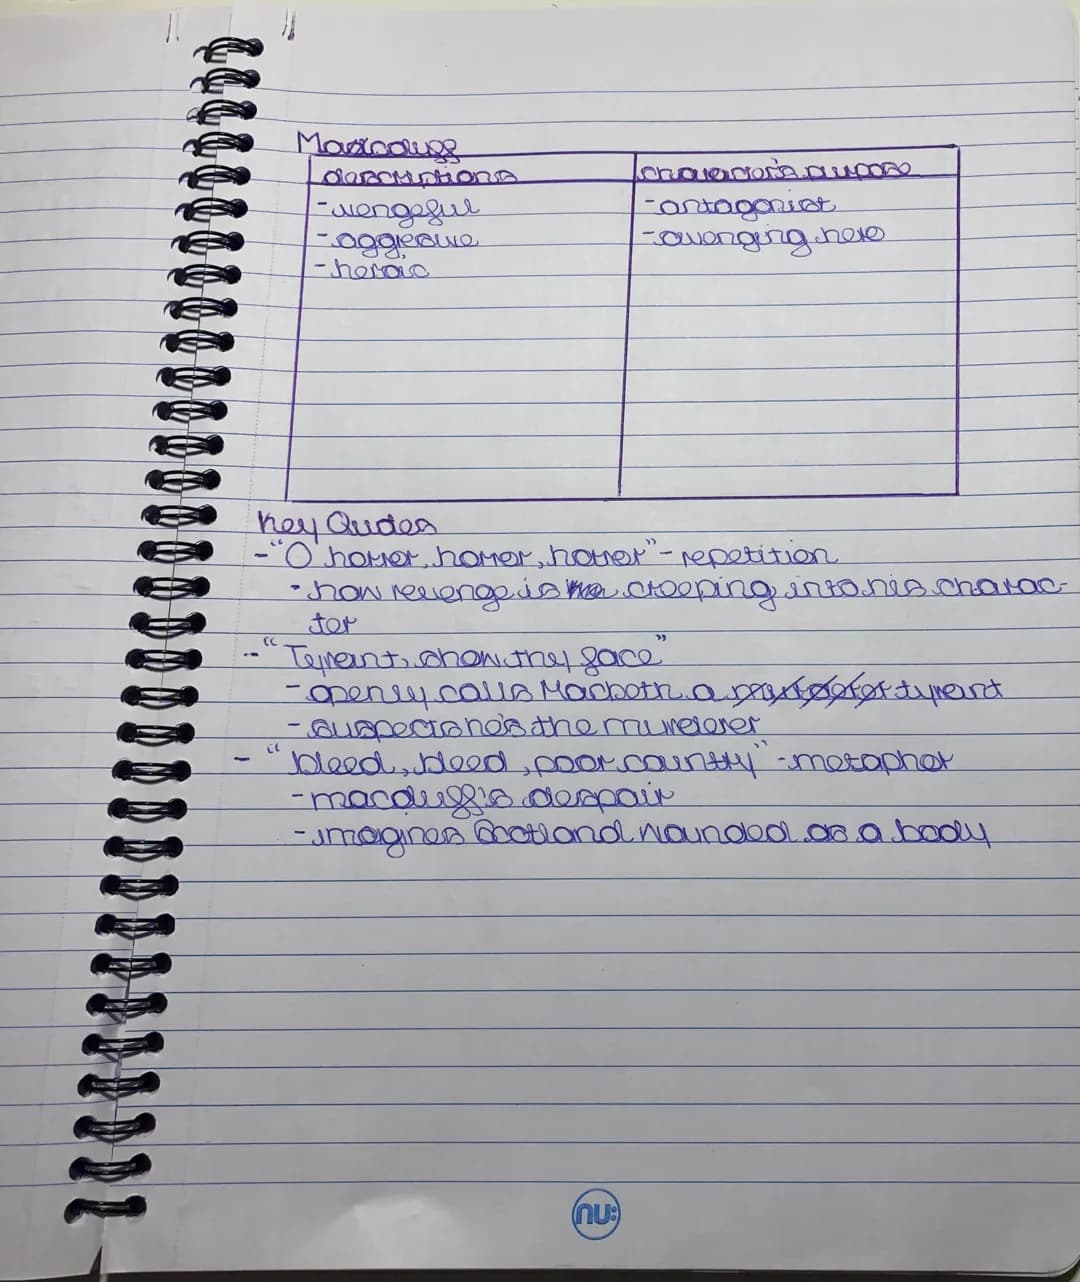 Macduff
descriptions
character's purpose
-vengeful
-antagonist
-aggresive
-avenging hero
-heroic
Key Quotes
-"O horror, horror, horror" - repetition
-how revenge is creeping into his charac-
ter
-"Tyrant, show thy face"
-openly calls Macbeth a tyrant
-suspects he's the murderer
-"bleed, bleed, poor country" -metaphor
-macduff's despair
-imagines Scotland wounded as a body
nu: